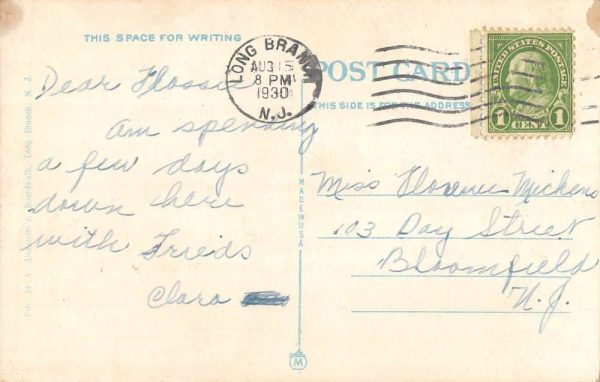 THIS SPACE FOR WRITING
Dear Flossie
am spending
a few days
down here
with Frieds
Clara
LONG BRANCH
AUG 15
8 PM
1930
N.J.
POST CARD
THIS SIDE IS FOR THE ADDRESS
UNITED STATES POSTAGE
1 CENT 1
Miss Florence Mickens
103 Day Street
Bloomfield
N.J.
MADE IN USA
Long Branch, N. J.
M